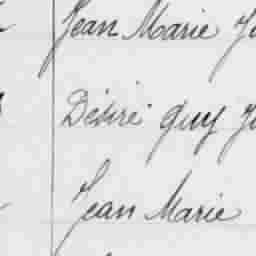 Jean Marie
Désiré Guy
Jean Marie